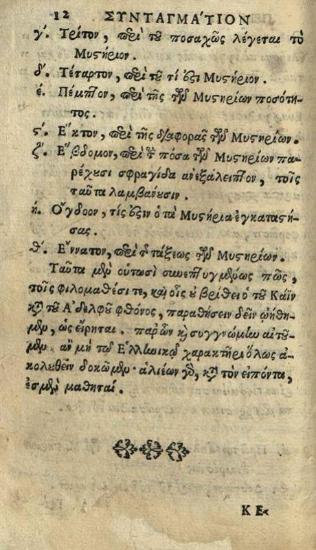 12 ΣΥΝΤΑΓΜΑΤΙΟΝ
γ΄. Τρίτον, περὶ τοῦ ποσαχῶς λέγεται τὸ
Μυστήριον.
δ΄. Τέταρτον, περὶ τοῦ τί ἐστι Μυστήριον.
ε΄. Πέμπτον, περὶ τῆς τῶν Μυστηρίων ποσότη-
τος.
ς΄. Ἕκτον, περὶ τῆς διαφορᾶς τῶν Μυστηρίων.
ζ΄. Ἕβδομον, περὶ τοῦ πόσα τῶν Μυστηρίων πα-
ρέχουσι σφραγίδα ἀνεξάλειπτον, τοῖς
ταῦτα λαμβάνουσιν.
η΄. Ὄγδοον, τίς ἐστιν ὁ τὰ Μυστήρια ἐγκαταστή-
σας.
θ΄. Ἔννατον, περὶ τῆς τάξεως τῶν Μυστηρίων.
Ταῦτα μὲν οὑτωσὶ συνεπτυγμένως πῶς,
τοῖς φιλομαθέσι τε, καὶ οἷς οὐ βρίθει ὁ τοῦ Κάϊν
κατὰ τοῦ Ἀδελφοῦ φθόνος, παραθήσειν δεῖν ᾠήθη-
μεν, ὡς εἴρηται. παρ' ὧν καὶ συγγνώμην αἰτοῦ-
μεν ἂν μὴ τῷ Ἑλληνικῷ χαρακτῆρι ὅλως ἀ-
κολουθεῖν δοκῶμεν. ἁλιέων γὰρ, κατὰ τὸν εἰπόντα,
ἐσμὲν μαθηταί.
ΚΕ-